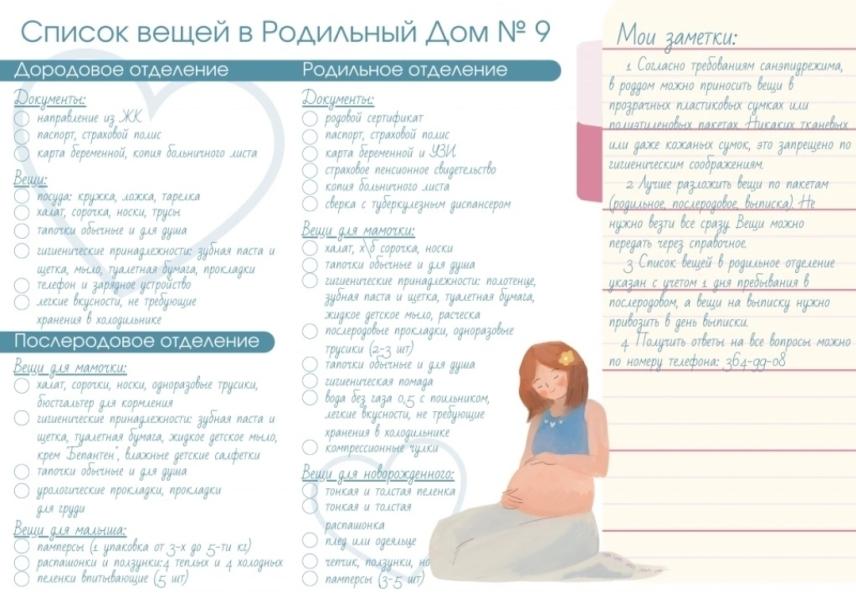 Список вещей в Родильный Дом № 9
Дородовое отделение
Документы:
направление из ЖК
паспорт, страховой полис
карта беременной, копия больничного листа
Вещи:
посуда: кружка, ложка, тарелка
халат, сорочка, носки, трусы
тапочки обычные и для душа
гигиенические принадлежности: зубная паста и
щетка, мыло, туалетная бумага, прокладки
телефон и зарядное устройство
легкие вкусности, не требующие
хранения в холодильнике
Послеродовое отделение
Вещи для мамочки:
халат, сорочки, носки, одноразовые трусики,
бюстгальтер для кормления
гигиенические принадлежности: зубная паста и
щетка, туалетная бумага, жидкое детское мыло,
крем "Бепантен", влажные детские салфетки
тапочки обычные и для душа
урологические прокладки, прокладки
для груди
Вещи для малыша:
памперсы (1 упаковка от 3-х до 5-ти кг)
распашонки и ползунки:4 теплых и 4 холодных
пеленки впитывающие (5 шт)
Родильное отделение
Документы:
родовой сертификат
паспорт, страховой полис
карта беременной и УЗИ
страховое пенсионное свидетельство
копия больничного листа
сверка с туберкулезным диспансером
Вещи для мамочки:
халат, х\б сорочка, носки
тапочки обычные и для душа
гигиенические принадлежности: полотенце,
зубная паста и щетка, туалетная бумага,
жидкое детское мыло, расческа
послеродовые прокладки, одноразовые
трусики (2-3 шт)
тапочки обычные и для душа
гигиеническая помада
вода без газа 0,5 с поильником,
легкие вкусности, не требующие
хранения в холодильнике
компрессионные чулки
Вещи для новорожденного:
тонкая и толстая пеленка
тонкая и толстая
распашонка
плед или одеяльце
чепчик, ползунки, но
памперсы (3-5 шт)
Мои заметки:
1. Согласно требованиям санэпидрежима,
в роддом можно приносить вещи в
прозрачных пластиковых сумках или
полиэтиленовых пакетах. Никаких тканевых
или даже кожаных сумок, это запрещено по
гигиеническим соображениям.
2. Лучше разложить вещи по пакетам
(родильное, послеродовое, выписка). Не
нужно везти все сразу. Вещи можно
передать через справочное.
3. Список вещей в родильное отделение
указан с учетом 1 дня пребывания в
послеродовом, а вещи на выписку нужно
привозить в день выписки.
4. Получить ответы на все вопросы можно
по номеру телефона: 364-99-08